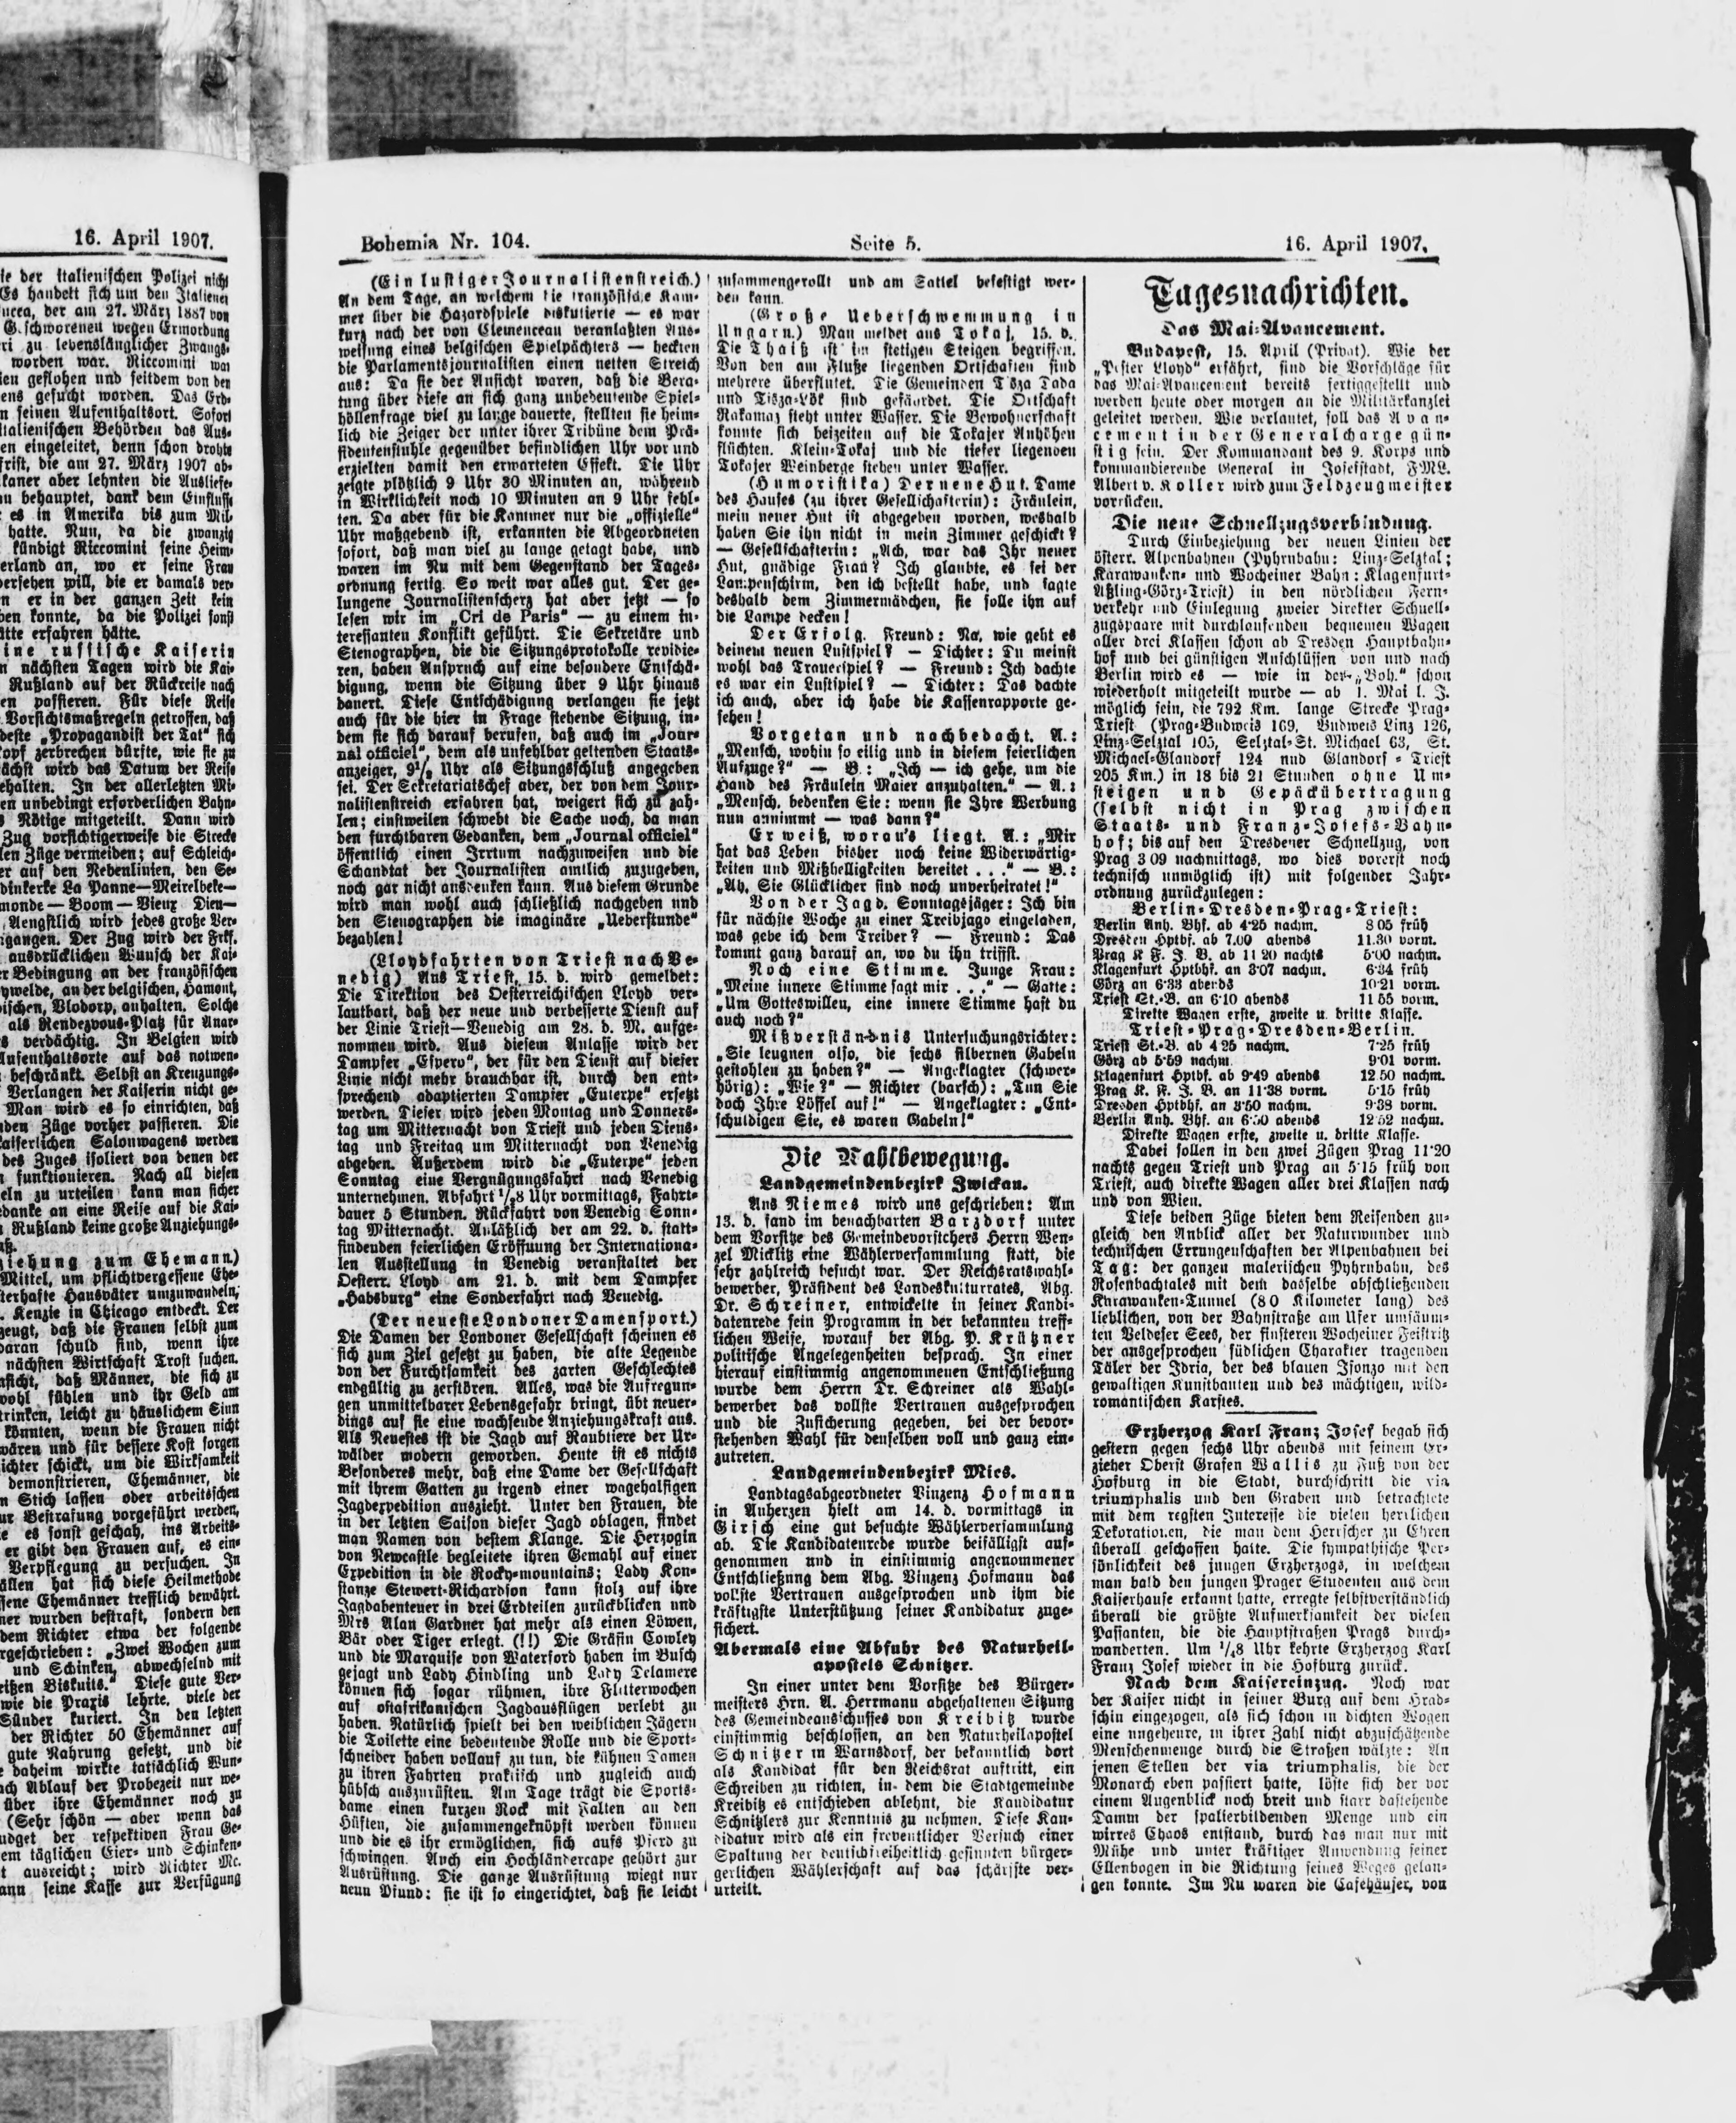 16. April 1907.
ie der italienischen Polizei nicht
Es handelt sich um den Italiener
ucca, der am 27. März 1887 von
Geschworenen wegen Ermordung
ri zu lebenslänglicher Zwangs-
worden war. Riccomini war
ien geflohen und seitdem von den
ens gesucht worden. Das Erd-
n seinen Aufenthaltsort. Sofort
italienischen Behörden das Aus-
en eingeleitet, denn schon drohte
frist, die am 27. März 1907 ab-
kaner aber lehnten die Ausliefe-
n behauptet, dank dem Einflusse
es in Amerika bis zum Mil-
hatte. Nun, da die zwanzig
kündigt Riccomini seine Heim-
erland an, wo er seine Frau
ersehen will, die er damals ver-
n er in der ganzen Zeit kein
ben konnte, da die Polizei sonst
ätte erfahren hätte.
ine russische Kaiserin
n nächsten Tagen wird die Kai-
Rußland auf der Rückreise nach
en passieren. Für diese Reise
Vorsichtsmaßregeln getroffen, daß
deste „Propagandist der Tat“ sich
opf zerbrechen dürfte, wie sie zu
ächst wird das Datum der Reise
ehalten. In der allerletzten Mi-
en unbedingt erforderlichen Bahn-
s Nötige mitgeteilt. Dann wird
Zug vorsichtigerweise die Strecke
len Züge vermeiden; auf Schleich-
er auf den Nebenlinien, den Ge-
dinkerke La Panne—Meirelbeke—
monde — Boom — Vieux Dieu—
Aengstlich wird jedes große Ver-
gangen. Der Zug wird der Frkf.
ausdrücklichen Wunsch der Kai-
er Bedingung an der französischen
ywelde, an der belgischen, Hamont,
ischen, Vlodorp, anhalten. Solche
als Rendezvous-Platz für Anar-
s verdächtig. In Belgien wird
Aufenthaltsorte auf das notwen-
beschränkt. Selbst an Kreuzungs-
Verlangen der Kaiserin nicht ge-
Man wird es so einrichten, daß
nden Züge vorher passieren. Die
kaiserlichen Salonwagens werden
des Zuges isoliert von denen der
funktionieren. Nach all diesen
eln zu urteilen kann man sicher
danke an eine Reise auf die Kai-
Rußland keine große Anziehungs-
ß.
iehung zum Ehemann.)
Mittel, um pflichtvergessene Ehe-
terhafte Hausväter umzuwandeln,
. Kenzie in Chicago entdeckt. Der
zeugt, daß die Frauen selbst zum
daran schuld sind, wenn ihre
nächsten Wirtschaft Trost suchen.
nsicht, daß Männer, die sich zu
wohl fühlen und ihr Geld am
trinken, leicht zu häuslichem Sinn
könnten, wenn die Frauen nicht
wären und für bessere Kost sorgen
ichter schickt, um die Wirksamkeit
demonstrieren, Ehemänner, die
n Stich lassen oder arbeitsschen
ur Bestrafung vorgeführt werden,
e es sonst geschah, ins Arbeits-
er gibt den Frauen auf, es ein-
Verpflegung zu versuchen. In
ällen hat sich diese Heilmethode
ssene Ehemänner trefflich bewährt.
ner wurden bestraft, sondern den
dem Richter etwa der folgende
rgeschrieben: „Zwei Wochen zum
und Schinken, abwechselnd mit
eißen Biskuits.“ Diese gute Ver-
wie die Praxis lehrte, viele der
Sünder kuriert. In den letzten
der Richter 50 Ehemänner auf
gute Nahrung gesetzt, und die
daheim wirkte tatsächlich Wun-
ach Ablauf der Probezeit nur we-
über ihre Ehemänner noch zu
(Sehr schön — aber wenn das
udget der respektiven Frau Ge-
em täglichen Eier- und Schinken-
t ausreicht; wird Richter Mc.
ann seine Kasse zur Verfügung
Bohemia Nr. 104.
Seite 5.
16. April 1907.
(Ein lustiger Journalistenstreich.)
An dem Tage, an welchem die französische Kam-
mer über die Hazardspiele diskutierte — es war
kurz nach der von Clemenceau veranlaßten Aus-
weisung eines belgischen Spielpächters — heckten
die Parlamentsjournalisten einen netten Streich
aus: Da sie der Ansicht waren, daß die Bera-
tung über diese an sich ganz unbedeutende Spiel-
höllenfrage viel zu lange dauerte, stellten sie heim-
lich die Zeiger der unter ihrer Tribüne dem Prä-
sidentenstuhle gegenüber befindlichen Uhr vor und
erzielten damit den erwarteten Effekt. Die Uhr
zeigte plötzlich 9 Uhr 30 Minuten an, während
in Wirklichkeit noch 10 Minuten an 9 Uhr fehl-
ten. Da aber für die Kammer nur die „offizielle“
Uhr maßgebend ist, erkannten die Abgeordneten
sofort, daß man viel zu lange getagt habe, und
waren im Nu mit dem Gegenstand der Tages-
ordnung fertig. So weit war alles gut. Der ge-
lungene Journalistenscherz hat aber jetzt — so
lesen wir im „Cri de Paris“ — zu einem in-
teressanten Konflikt geführt. Die Sekretäre und
Stenographen, die die Sitzungsprotokolle revidie-
ren, haben Anspruch auf eine besondere Entschä-
digung, wenn die Sitzung über 9 Uhr hinaus
dauert. Diese Entschädigung verlangen sie jetzt
auch für die hier in Frage stehende Sitzung, in-
dem sie sich darauf berufen, daß auch im „Jour-
nal officiel“, dem als unfehlbar geltenden Staats-
anzeiger, 9½ Uhr als Sitzungsschluß angegeben
sei. Der Sekretariatschef aber, der von dem Jour-
nalistenstreich erfahren hat, weigert sich zu zah-
len; einstweilen schwebt die Sache noch, da man
den furchtbaren Gedanken, dem „Journal officiel“
öffentlich einen Irrtum nachzuweisen und die
Schandtat der Journalisten amtlich zuzugeben,
noch gar nicht ausdenken kann. Aus diesem Grunde
wird man wohl auch schließlich nachgeben und
den Stenographen die imaginäre „Ueberstunde“
bezahlen!
(Lloydfahrten von Triest nach Ve-
nedig) Aus Triest, 15. d. wird gemeldet:
Die Direktion des Oesterreichischen Lloyd ver-
lautbart, daß der neue und verbesserte Dienst auf
der Linie Triest—Venedig am 28. d. M. aufge-
nommen wird. Aus diesem Anlasse wird der
Dampfer „Espero“, der für den Dienst auf dieser
Linie nicht mehr brauchbar ist, durch den ent-
sprechend adaptierten Dampfer „Euterpe“ ersetzt
werden. Dieser wird jeden Montag und Donners-
tag um Mitternacht von Triest und jeden Diens-
tag und Freitag um Mitternacht von Venedig
abgehen. Außerdem wird die „Euterpe“ jeden
Sonntag eine Vergnügungsfahrt nach Venedig
unternehmen. Abfahrt ½8 Uhr vormittags, Fahrt-
dauer 5 Stunden. Rückfahrt von Venedig Sonn-
tag Mitternacht. Anläßlich der am 22. d. statt-
findenden feierlichen Eröffnung der Internationa-
len Ausstellung in Venedig veranstaltet der
Oesterr. Lloyd am 21. d. mit dem Dampfer
„Habsburg“ eine Sonderfahrt nach Venedig.
(Der neueste Londoner Damensport.)
Die Damen der Londoner Gesellschaft scheinen es
sich zum Ziel gesetzt zu haben, die alte Legende
von der Furchtsamkeit des zarten Geschlechtes
endgültig zu zerstören. Alles, was die Aufregun-
gen unmittelbarer Lebensgefahr bringt, übt neuer-
dings auf sie eine wachsende Anziehungskraft aus.
Als Neuestes ist die Jagd auf Raubtiere der Ur-
wälder modern geworden. Heute ist es nichts
Besonderes mehr, daß eine Dame der Gesellschaft
mit ihrem Gatten zu irgend einer wagehalsigen
Jagdexpedition auszieht. Unter den Frauen, die
in der letzten Saison dieser Jagd oblagen, findet
man Namen von bestem Klange. Die Herzogin
von Newcastle begleitete ihren Gemahl auf einer
Expedition in die Rocky-mountains; Lady Kon-
stanze Stewert-Richardson kann stolz auf ihre
Jagdabenteuer in drei Erdteilen zurückblicken und
Mrs Alan Gardner hat mehr als einen Löwen,
Bär oder Tiger erlegt. (!!) Die Gräfin Cowley
und die Marquise von Waterford haben im Busch
gejagt und Lady Hindling und Lady Delamere
können sich sogar rühmen, ihre Flitterwochen
auf ostafrikanischen Jagdausflügen verlebt zu
haben. Natürlich spielt bei den weiblichen Jägern
die Toilette eine bedeutende Rolle und die Sport-
schneider haben vollauf zu tun, die kühnen Damen
zu ihren Fahrten praktisch und zugleich auch
hübsch auszurüsten. Am Tage trägt die Sports-
dame einen kurzen Rock mit Falten an den
Hüften, die zusammengeknöpft werden können
und die es ihr ermöglichen, sich aufs Pferd zu
schwingen. Auch ein Hochländercape gehört zur
Ausrüstung. Die ganze Ausrüstung wiegt nur
neun Pfund: sie ist so eingerichtet, daß sie leicht
zusammengerollt und am Sattel befestigt wer-
den kann.
(Große Ueberschwemmung in
Ungarn.) Man meldet aus Tokaj, 15. d.
Die Thaiß ist im stetigen Steigen begriffen.
Von den am Fluße liegenden Ortschaften sind
mehrere überflutet. Die Gemeinden Tisza Dada
und Tisza-Lök sind gefährdet. Die Ortschaft
Rakamaz steht unter Wasser. Die Bewohnerschaft
konnte sich beizeiten auf die Tokajer Anhöhen
flüchten. Klein-Tokaj und die tiefer liegenden
Tokajer Weinberge stehen unter Wasser.
(Humoristika) Der neue Hut. Dame
des Hauses (zu ihrer Gesellschafterin): Fräulein,
mein neuer Hut ist abgegeben worden, weshalb
haben Sie ihn nicht in mein Zimmer geschickt?
— Gesellschafterin: „Ach, war das Ihr neuer
Hut, gnädige Frau? Ich glaubte, es sei der
Lampenschirm, den ich bestellt habe, und sagte
deshalb dem Zimmermädchen, sie solle ihn auf
die Lampe decken!
Der Erfolg. Freund: Na, wie geht es
deinem neuen Lustspiel? — Dichter: Du meinst
wohl das Trauerspiel? — Freund: Ich dachte
es war ein Lustspiel? — Dichter: Das dachte
ich auch, aber ich habe die Kassenrapporte ge-
sehen!
Vorgetan und nachbedacht. A.:
„Mensch, wohin so eilig und in diesem feierlichen
Aufzuge?“ — B.: „Ich — ich gehe, um die
Hand des Fräulein Maier anzuhalten.“ — A.:
„Mensch, bedenken Sie: wenn sie Ihre Werbung
nun annimmt — was dann?“
Er weiß, worau's liegt. A.: „Mir
hat das Leben bisher noch keine Widerwärtig-
keiten und Mißhelligkeiten bereitet . . .“ — B.:
„Ah, Sie Glücklicher sind noch unverheiratet!“
Von der Jagd. Sonntagsjäger: Ich bin
für nächste Woche zu einer Treibjagd eingeladen,
was gebe ich dem Treiber? — Freund: Das
kommt ganz darauf an, wo du ihn triffst.
Noch eine Stimme. Junge Frau:
„Meine innere Stimme sagt mir . . .“ — Gatte:
„Um Gotteswillen, eine innere Stimme hast du
auch noch?“
Mißverständnis Untersuchungsrichter:
„Sie leugnen also, die sechs silbernen Gabeln
gestohlen zu haben?“ — Angeklagter (schwer-
hörig): „Wie?“ — Richter (barsch): „Tun Sie
doch Ihre Löffel auf!“ — Angeklagter: „Ent-
schuldigen Sie, es waren Gabeln!“
Die Wahlbewegung.
Landgemeindenbezirk Zwickau.
Aus Niemes wird uns geschrieben: Am
13. d. fand im benachbarten Barzdorf unter
dem Vorsitze des Gemeindevorstehers Herrn Wen-
zel Micklitz eine Wählerversammlung statt, die
sehr zahlreich besucht war. Der Reichsratswahl-
bewerber, Präsident des Landeskulturrates, Abg.
Dr. Schreiner, entwickelte in seiner Kandi-
datenrede sein Programm in der bekannten treff-
lichen Weise, worauf der Abg. P. Krützner
politische Angelegenheiten besprach. In einer
hierauf einstimmig angenommenen Entschließung
wurde dem Herrn Dr. Schreiner als Wahl-
bewerber das vollste Vertrauen ausgesprochen
und die Zusicherung gegeben, bei der bevor-
stehenden Wahl für denselben voll und ganz ein-
zutreten.
Landgemeindenbezirk Mies.
Landtagsabgeordneter Vinzenz Hofmann
in Auherzen hielt am 14. d. vormittags in
Girsch eine gut besuchte Wählerversammlung
ab. Die Kandidatenrede wurde beifälligst auf-
genommen und in einstimmig angenommener
Entschließung dem Abg. Vinzenz Hofmann das
vollste Vertrauen ausgesprochen und ihm die
kräftigste Unterstützung seiner Kandidatur zuge-
sichert.
Abermals eine Abfuhr des Naturheil-
apostels Schnitzer.
In einer unter dem Vorsitze des Bürger-
meisters Hrn. A. Herrmann abgehaltenen Sitzung
des Gemeindeausschusses von Kreibitz wurde
einstimmig beschlossen, an den Naturheilapostel
Schnitzer in Warnsdorf, der bekanntlich dort
als Kandidat für den Reichsrat auftritt, ein
Schreiben zu richten, in- dem die Stadtgemeinde
Kreibitz es entschieden ablehnt, die Kandidatur
Schnitzlers zur Kenntnis zu nehmen. Diese Kan-
didatur wird als ein freventlicher Versuch einer
Spaltung der deutschfreiheitlich gesinnten bürger-
gerlichen Wählerschaft auf das schärfste ver-
urteilt.
Tagesnachrichten.
Das Mai-Avancement.
Budapest, 15. April (Privat). Wie der
„Pester Lloyd“ erfährt, sind die Vorschläge für
das Mai-Avancement bereits fertiggestellt und
werden heute oder morgen an die Militärkanzlei
geleitet werden. Wie verlautet, soll das Avan-
cement in der Generalcharge gün-
stig sein. Der Kommandant des 9. Korps und
kommandierende General in Josefstadt, FML.
Albert v. Koller wird zum Feldzeugmeister
vorrücken.
Die neue Schnellzugsverbindung.
Durch Einbeziehung der neuen Linien der
österr. Alpenbahnen (Pyhrnbahn: Linz-Selztal;
Karawanken- und Wocheiner Bahn: Klagenfurt-
Aßling-Görz-Triest) in den nördlichen Fern-
verkehr und Einlegung zweier direkter Schnell-
zugspaare mit durchlaufenden bequemen Wagen
aller drei Klassen schon ab Dresden Hauptbahn-
hof und bei günstigen Anschlüssen von und nach
Berlin wird es — wie in der „Boh.“ schon
wiederholt mitgeteilt wurde — ab 1. Mai l. J.
möglich sein, die 792 Km. lange Strecke Prag-
Triest (Prag-Budweis 169, Budweis Linz 126,
Linz-Selztal 105, Selztal-St. Michael 63, St.
Michael-Glandorf 124 und Glandorf - Triest
205 Km.) in 18 bis 21 Stunden ohne Um-
steigen und Gepäckübertragung
(selbst nicht in Prag zwischen
Staats- und Franz-Josefs-Bahn-
hof; bis auf den Dresdener Schnellzug, von
Prag 3 09 nachmittags, wo dies vorerst noch
technisch unmöglich ist) mit folgender Fahr-
ordnung zurückzulegen:
Berlin-Dresden-Prag-Triest:
Berlin Anh. Bhf. ab 4·25 nachm. 8 05 früh
Dresden Hptbf. ab 7.00 abends 11.30 vorm.
Prag K F. J. B. ab 11 20 nachts 5·00 nachm.
Klagenfurt Hptbhf. an 3·07 nachm. 6·34 früh
Görz an 6·33 abends 10·21 vorm.
Triest St.-B. an 6·10 abends 11 55 vorm.
Direkte Wagen erste, zweite u. dritte Klasse.
Triest-Prag-Dresden-Berlin.
Triest St.-B. ab 4 25 nachm. 7·25 früh
Görz ab 5·59 nachm. 9·01 vorm.
Klagenfurt Hptbf. ab 9·49 abends 12 50 nachm.
Prag K. K. J. B. an 11·38 vorm. 5·15 früh
Dresden Hptbhf. an 3·50 nachm. 9·38 vorm.
Berlin Anh. Bhf. an 6·50 abends 12 52 nachm.
Direkte Wagen erste, zweite u. dritte Klasse.
Dabei sollen in den zwei Zügen Prag 11·20
nachts gegen Triest und Prag an 5·15 früh von
Triest, auch direkte Wagen aller drei Klassen nach
und von Wien.
Diese beiden Züge bieten dem Reisenden zu-
gleich den Anblick aller der Naturwunder und
technischen Errungenschaften der Alpenbahnen bei
Tag: der ganzen malerischen Pyhrnbahn, des
Rosenbachtales mit dem dasselbe abschließenden
Karawanken-Tunnel (8 0 Kilometer lang) des
lieblichen, von der Bahnstraße am Ufer umsäum-
ten Veldeser Sees, der finsteren Wocheiner Feistritz
der ausgesprochen südlichen Charakter tragenden
Täler der Idria, der des blauen Isonzo mit den
gewaltigen Kunstbauten und des mächtigen, wild-
romantischen Karstes.
Erzherzog Karl Franz Josef begab sich
gestern gegen sechs Uhr abends mit seinem Er-
zieher Oberst Grafen Wallis zu Fuß von der
Hofburg in die Stadt, durchschritt die via
triumphalis und den Graben und betrachtete
mit dem regsten Interesse die vielen herrlichen
Dekorationen, die man dem Herrscher zu Ehren
überall geschaffen hatte. Die sympathische Per-
sönlichkeit des jungen Erzherzogs, in welchem
man bald den jungen Prager Studenten aus dem
Kaiserhause erkannt hatte, erregte selbstverständlich
überall die größte Aufmerksamkeit der vielen
Passanten, die die Hauptstraßen Prags durch-
wanderten. Um ¼8 Uhr kehrte Erzherzog Karl
Franz Josef wieder in die Hofburg zurück.
Nach dem Kaisereinzug. Noch war
der Kaiser nicht in seiner Burg auf dem Hrad-
schin eingezogen, als sich schon in dichten Wogen
eine ungeheure, in ihrer Zahl nicht abzuschätzende
Menschenmenge durch die Straßen wälzte: An
jenen Stellen der via triumphalis, die der
Monarch eben passiert hatte, löste sich der vor
einem Augenblick noch breit und starr dastehende
Damm der spalierbildenden Menge und ein
wirres Chaos entstand, durch das man nur mit
Mühe und unter kräftiger Anwendung seiner
Ellenbogen in die Richtung seines Weges gelan-
gen konnte. Im Nu waren die Cafehäuser, von